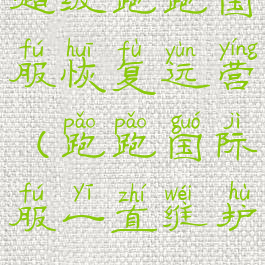 超级跑跑国
fú huī fù yùn yíng
服恢复运营
pǎo pǎo guó jì
(跑跑国际
fú yī zhí wéi hù
服一直维护